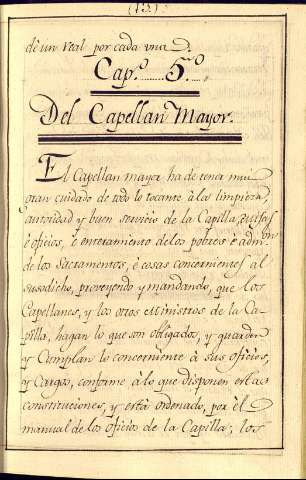 (15.)
de un real por cada una D.
Cap.º 5.º
Del Capellan Mayor.
El Capellan mayor ha de tener mui
gran cuidado de todo lo tocante à la limpieza,
autoridad y buen servicio de la Capilla,
è oficios, è enterramiento de los pobres è adm.on
de los Sacramentos, è cosas concernientes al
susodicho, proveyendo y mandando, que los
Capellanes, y los otros Ministros de la Ca-
pilla, hagan lo que son obligados, y guarden
y Cumplan lo concerniente à sus oficios,
y Cargos, conforme à lo que disponen estas
constituciones, y està ordenado, por èl
manual de los oficios de la Capilla; los